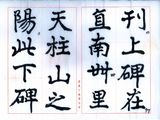 刊上碑在
直南卌里
天柱山之
陽此下碑